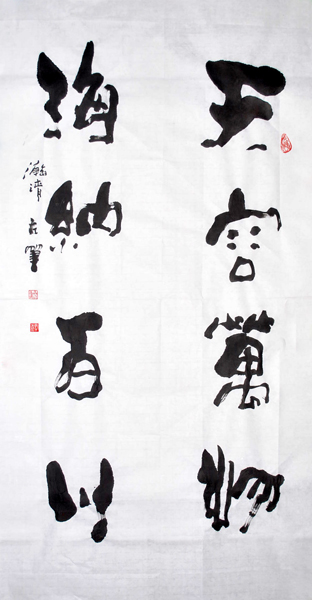 天容萬物
海納百川